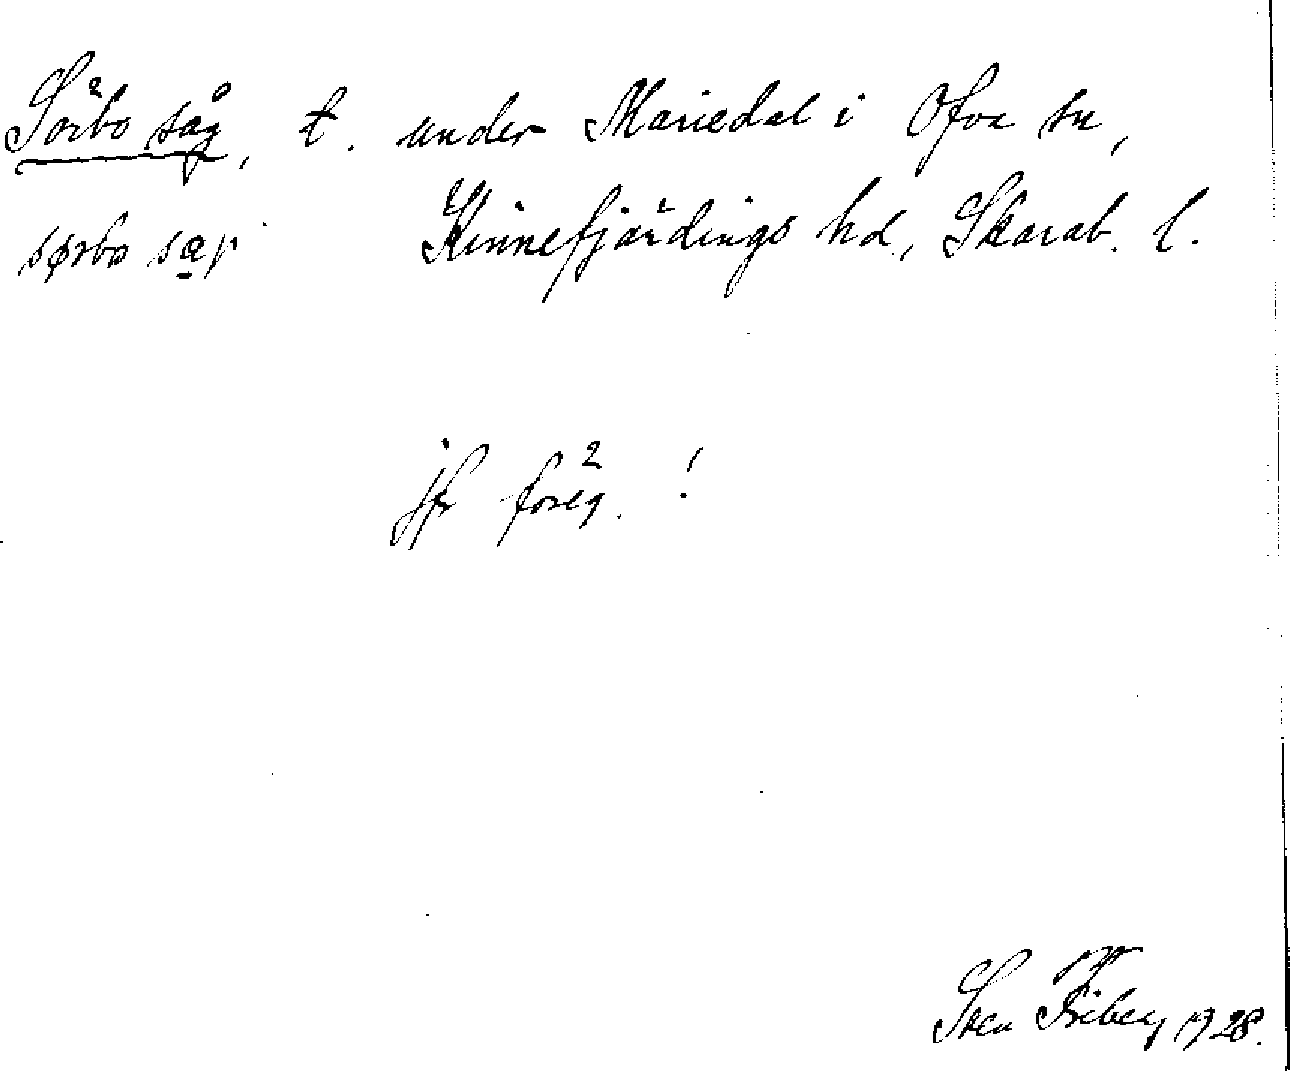 Sörbo såg, t. under Mariedal i Ofva sn,
Kinnefjärdings hd., Skarab. l.
jfr föreg. !
Sven Friberg 1928.